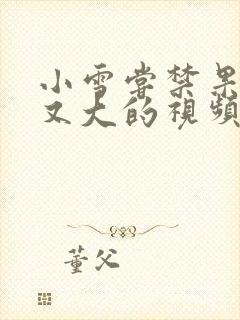 小雪嘗禁果
又大的視頻
董父